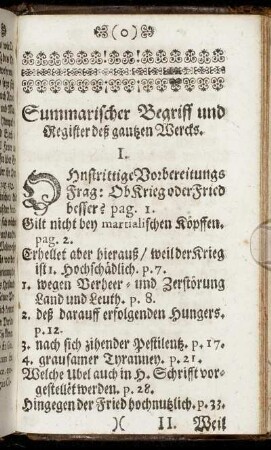 (o)
Summarischer Begriff und
Register deß gantzen Wercks.
I.
OHnstrittige Vorbereitungs
Frag: Ob Krieg oder Fried
besser? pag. 1.
Gilt nicht bey martialischen Köpffen.
pag. 2.
Erhellet aber hierauß / weil der Krieg
ist 1. Hochschädlich. p. 7.
1. wegen Verheer- und Zerstörung
Land und Leuth. p. 8.
2. deß darauff erfolgenden Hungers.
p. 12.
3. nach sich zihender Pestilentz. p. 17.
4. grausamer Tyranney. p. 21.
Welche Ubel auch in H. Schrifft vor-
gestellet werden. p. 28.
Hingegen der Fried hochnutzlich. p. 33.
)( II. Weil